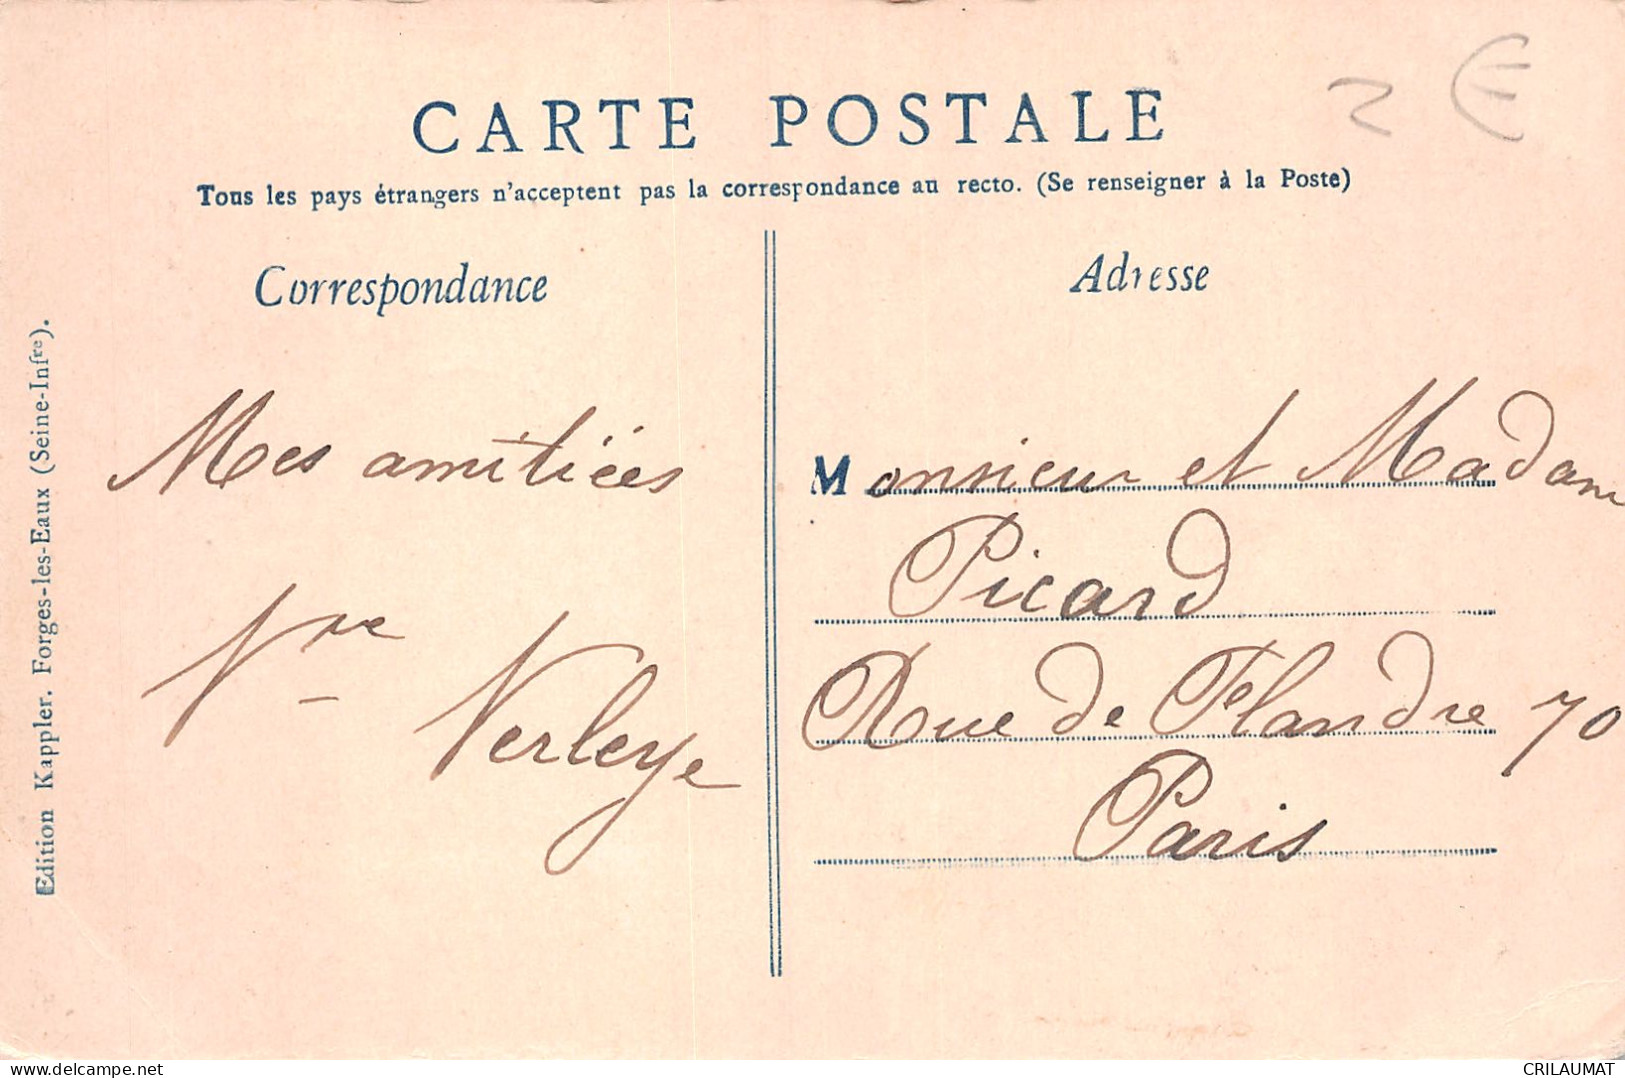 2 €
CARTE POSTALE
Tous les pays étrangers n'acceptent pas la correspondance au recto. (Se renseigner à la Poste)
Correspondance
Adresse
Mes amitiées
Vve Verleye
Monsieur et Madame
Picard
Rue de Flandre 70
Paris
Edition Kappler. Forges-les-Eaux (Seine-Infre).
delcampe.net
CRILAUMAT